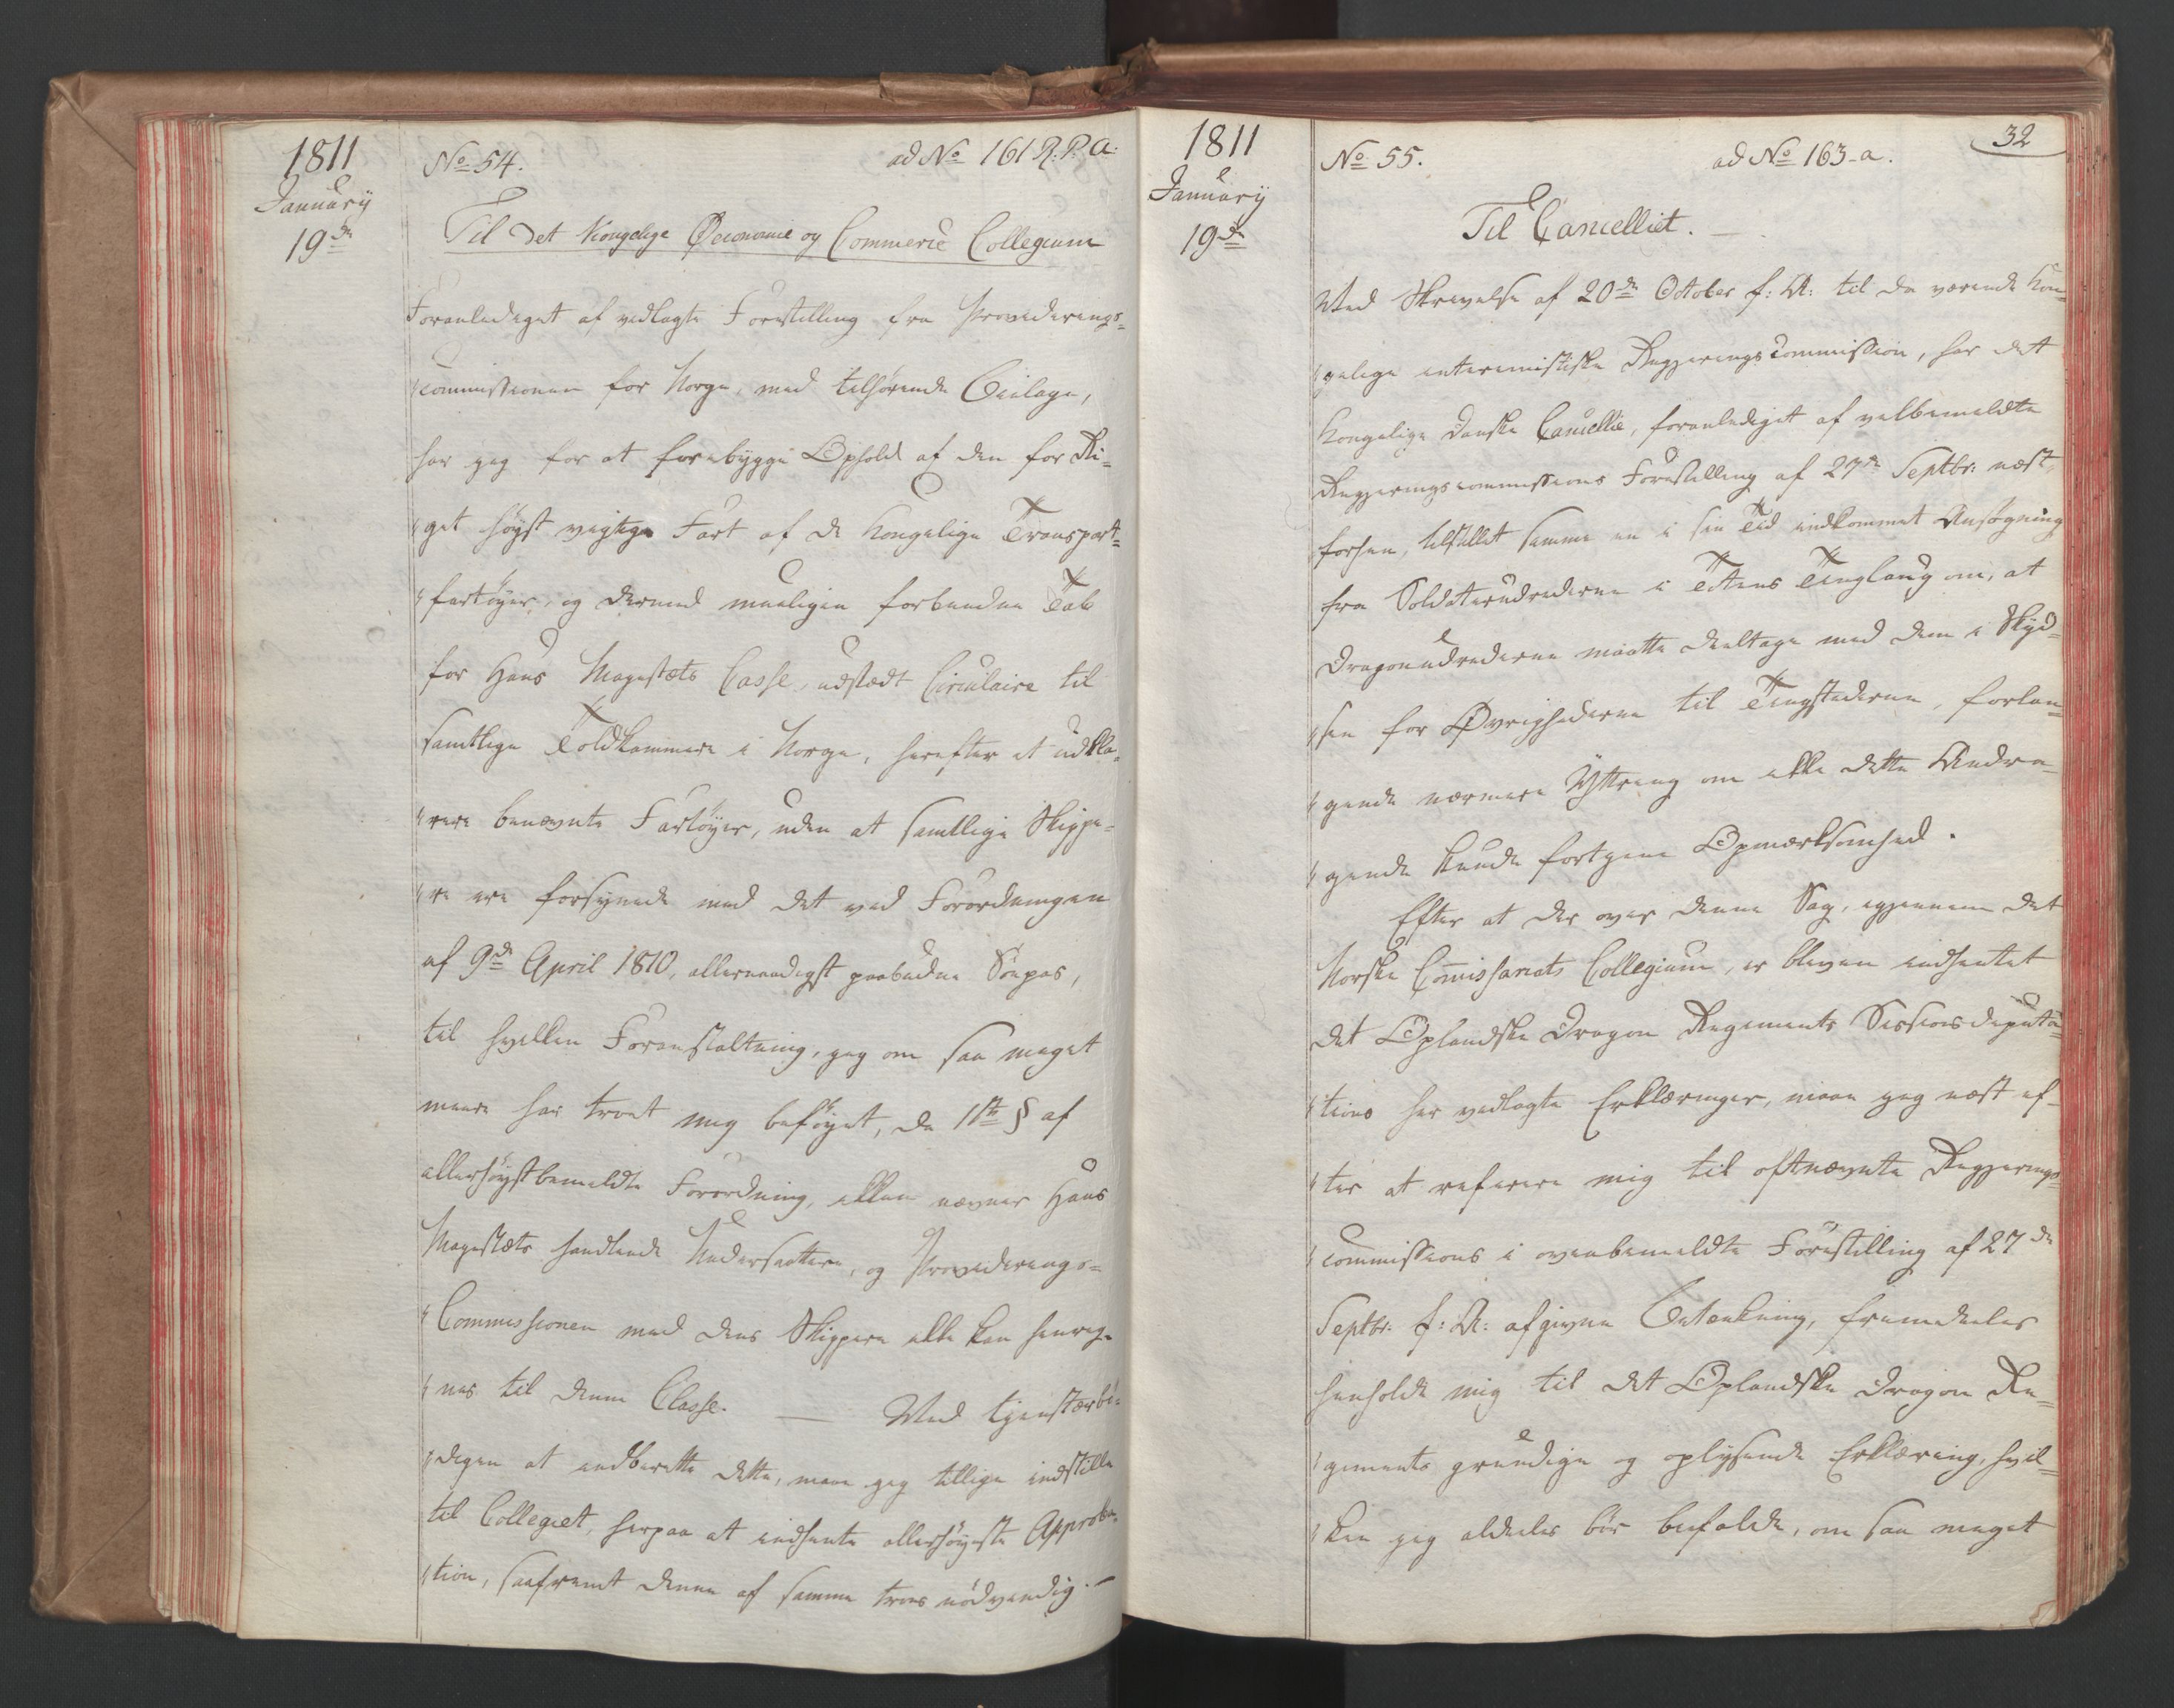 1811
January
19de
No 54.
ad No 161 R. P. a:
Til Det Kongelige Oeconomie og Commerce Collegium
Foranlediget af vedlagte Forestilling fra Providerings=
commissionen for Norge, med tilhørende Beilage,
har jeg for at forebygge Ophold af den for Ri=
get høyst vigtige Fart af de Kongelige Transport=
fartøyer, og dermed mueligen forbunden Tab
for Hans Majestæts Casse, udstædt Circulaire til
samtlige Toldkammere i Norge, herefter at udkla=
rere benævnte Fartøyer, uden at samtlige Skippe=
re ere forsynede med det ved Forordningen
af 9de April 1810, allernaadigst paabudne Søepas,
til hvilken Foranstaltning, jeg om saa meget
meere har troet mig beføyet, da 11te § af
allerhøystbemeldte Forordning, allene nævner Hans
Majestæts handlende Undersaatter, og Providerings=
Commissionen med dens Skippere ikke kan henreg=
nes til denne Classe. — Ved tjenstærbö=
digen at indberette dette, maae jeg tillige indstille
til Collegiet, herpaa at indhente allerhøyeste Approba=
tion, saafremt denne af samme troes nödvendig. —
1811
January
19de
No 55.
ad No 163-a.
32
Til Cancelliet. —
Ved Skrivelse af 20de October f: A: til da værende Kon=
gelige interimistiske Regjerings Commission, har det
Kongelige Danske Cancellie, foranlediget af velbemeldte
Regjeringscommissions Forestilling af 27de Septbr: næst,
forhen, tilstillet samme en i sin Tid indkommet Ansøgning
fra Soldaterudrederne i Totens Tinglaug om, at
Dragonudrederne maatte deeltage med dem i Skyd=
sen for Øvrighederne til Tingstederne, forlan=
gende nærmere Yttring om ikke dette Andra=
gende kunde fortjene Opmærksomhed.
Efter at der over denne Sag, igjennem det
Norske Comissariats Collegium, er bleven indhentet
det Oplandske Dragon Regiments Sessionsdeputa=
tions her vedlagte Erklæringer, maae jeg næst ef=
ter at referere mig til oftnævnte Regjerings=
commissions i ovenbemeldte Forestilling af 27de
Septbr: f: A: afgivne Betænkning, fremdeeles
henholde mig til det Oplandske Dragon Re=
giments grundige og oplysende Erklæring, hvil=
ken jeg aldeeles bör biefalde, om saa meget